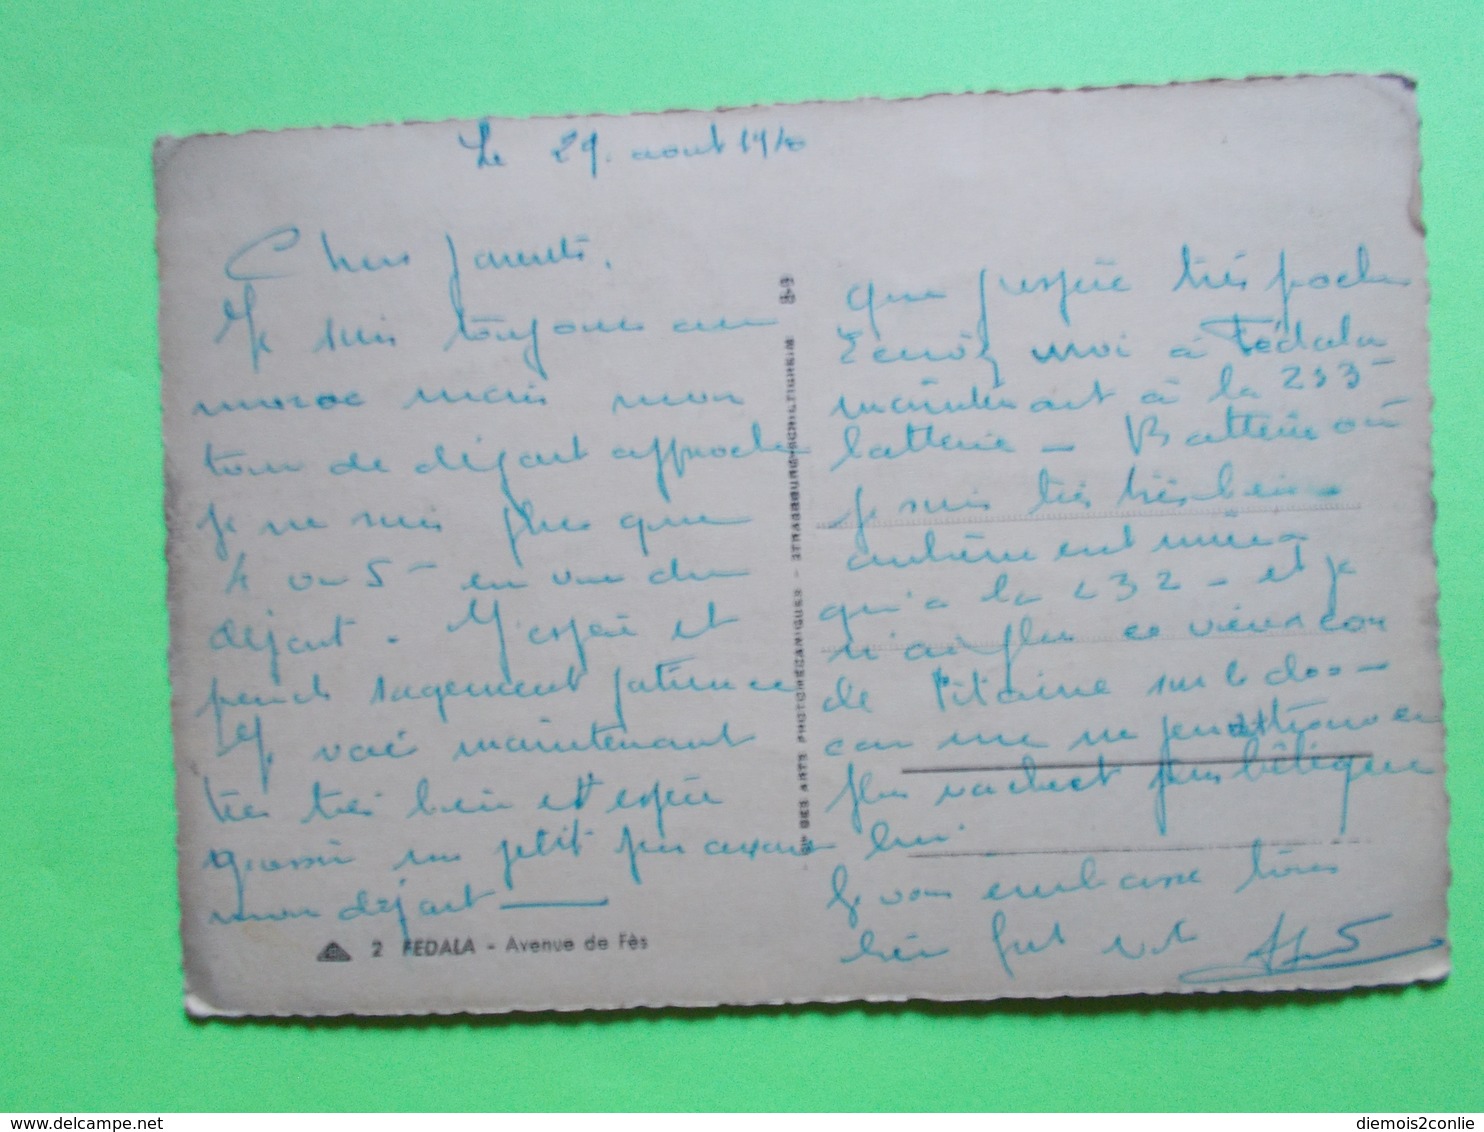 Le 29. aout 19
Chers parents,
Je suis toujours au
maroc mais mon
tour de départ approche
je ne suis plus que
4 ou 5 en vue du
départ. J'espère et
prends sagement patience
Je vais maintenant
très très bien et espère
grossir un petit peu avant
mon départ
2 FEDALA - Avenue de Fès
Cie DES ARTS PHOTOMECANIQUES - STRASBOURG-SCHILTIGHEIM
que j'espère très proche
Ecrivez moi à Fédala
maintenant à la 233
batterie - Batterie où
je suis très très bien
autrement mieux
qu'a la 232 - et je
n'ai plus ce vieux con
de Pitaine sur le dos -
car une
plus vachect que
lui.
Je vous embrasse tous
bien fort